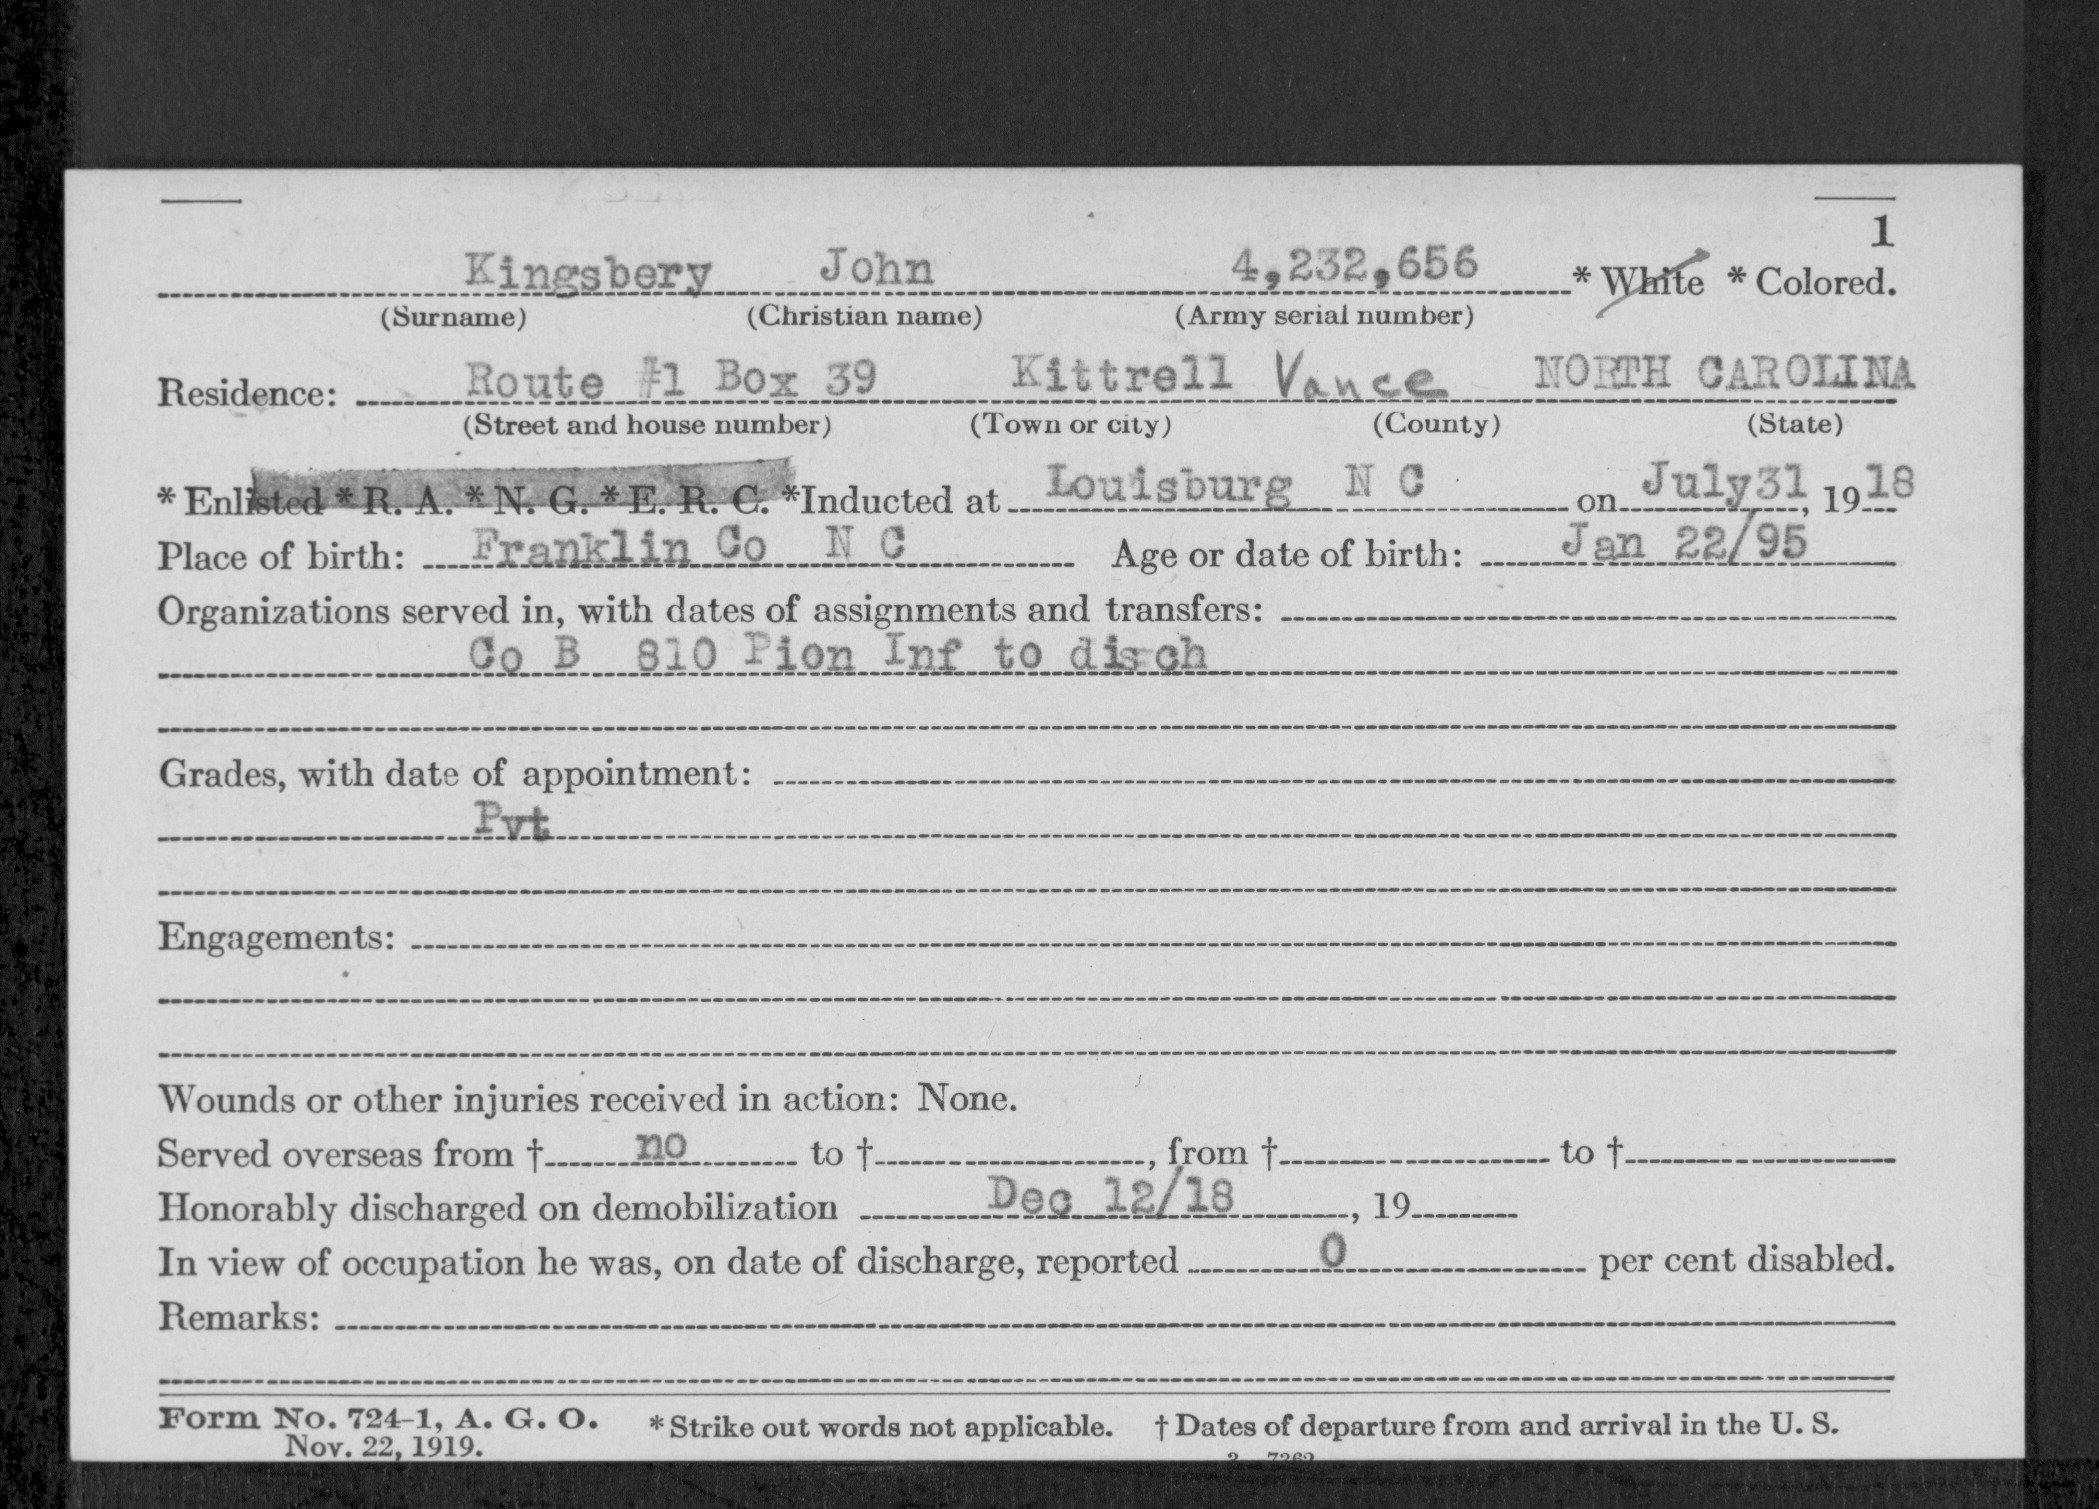 1
Kingsbery John 4,232,656 * White * Colored.
(Surname) (Christian name) (Army serial number)
Residence: Route #1 Box 39 Kittrell Vance NORTH CAROLINA
(Street and house number) (Town or city) (County) (State)
* Enlisted * R. A. * N. G. * E. R. C. * Inducted at Louisburg N C on July 31, 1918
Place of birth: Franklin Co N C Age or date of birth: Jan 22/95
Organizations served in, with dates of assignments and transfers:
Co B 810 Pion Inf to disch
Grades, with date of appointment:
Pvt
Engagements:
Wounds or other injuries received in action: None.
Served overseas from † no to †, from † to †
Honorably discharged on demobilization Dec 12/18, 19
In view of occupation he was, on date of discharge, reported 0 per cent disabled.
Remarks:
Form No. 724-1, A. G. O. * Strike out words not applicable. † Dates of departure from and arrival in the U. S.
Nov. 22, 1919.